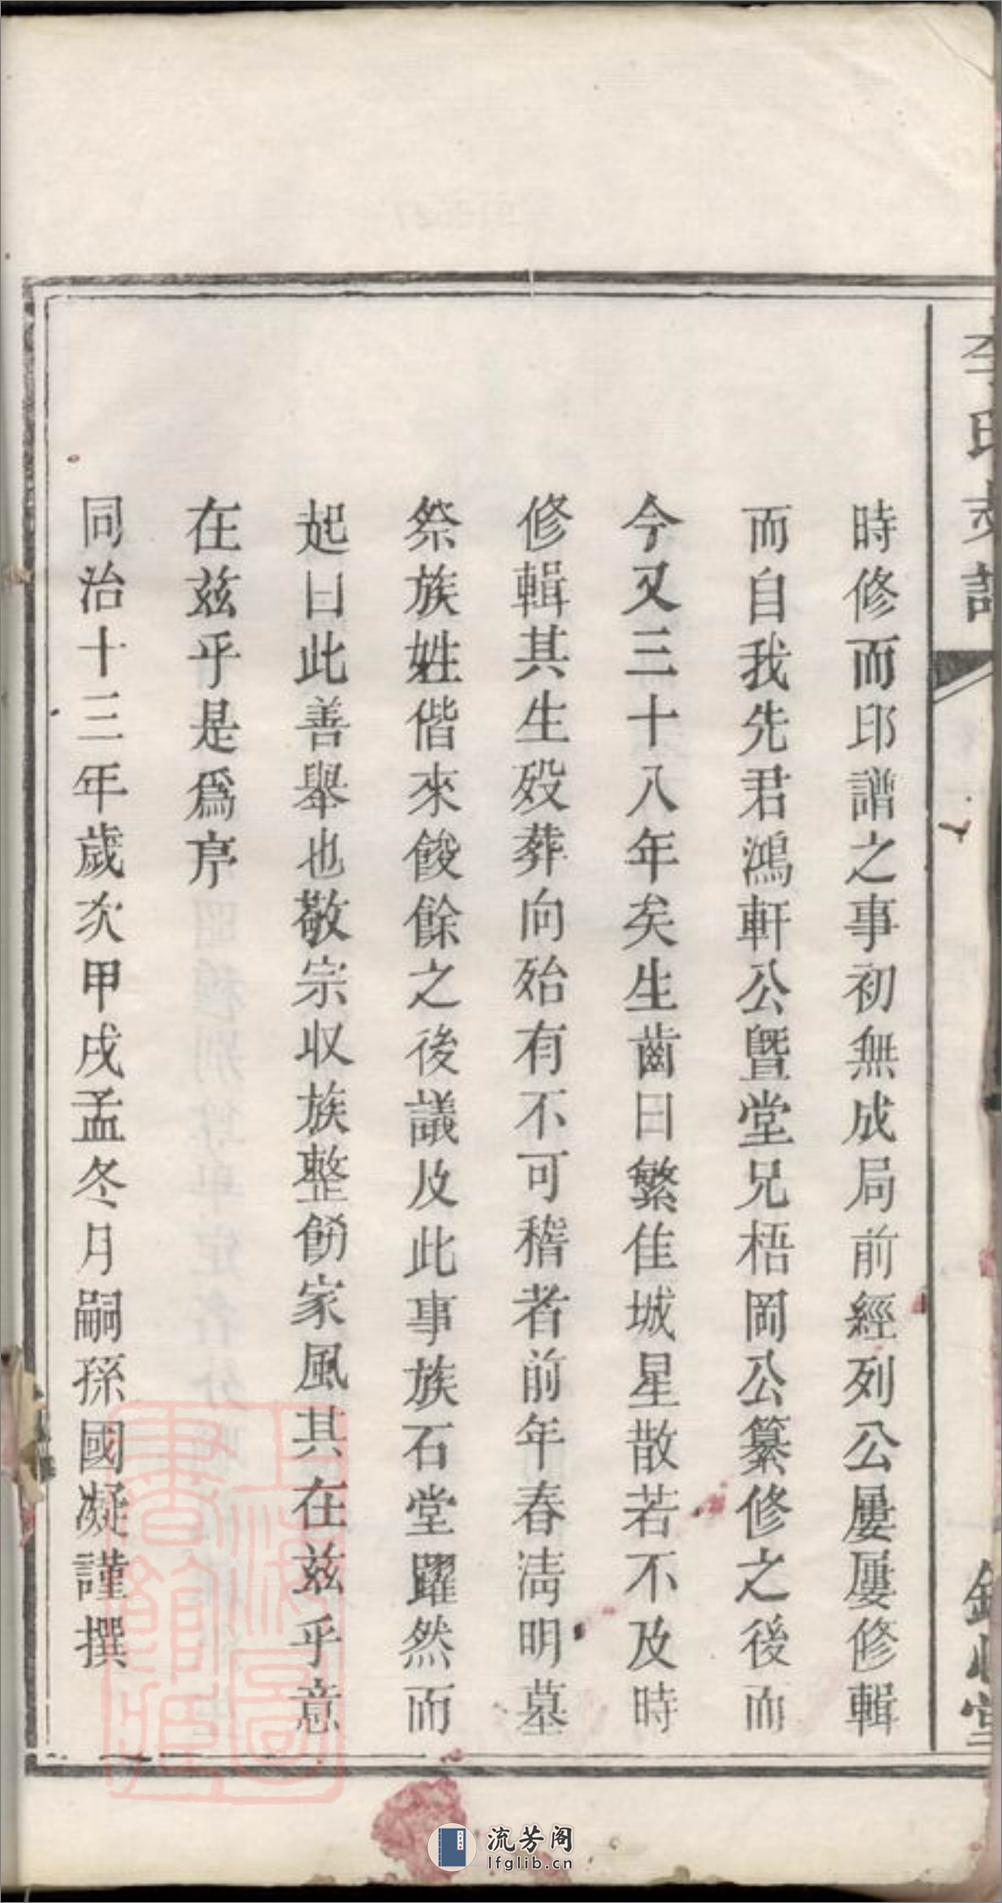 時修而邱譜之事初無成局前經列公屢屢修輯
而自我先君鴻軒公暨堂兄梧岡公纂修之後而
今又三十八年矣生齒日繁佳城星散若不及時
修輯其生殁葬向殆有不可稽者前年春淸明墓
祭族姓偕來餕餘之後議及此事族石堂躍然而
起曰此善舉也敬宗收族整飭家風其在茲乎意
在茲乎是爲序
同治十三年歲次甲戌孟冬月嗣孫國凝謹撰
上海圖書館藏
流芳阁
lfglib.cn